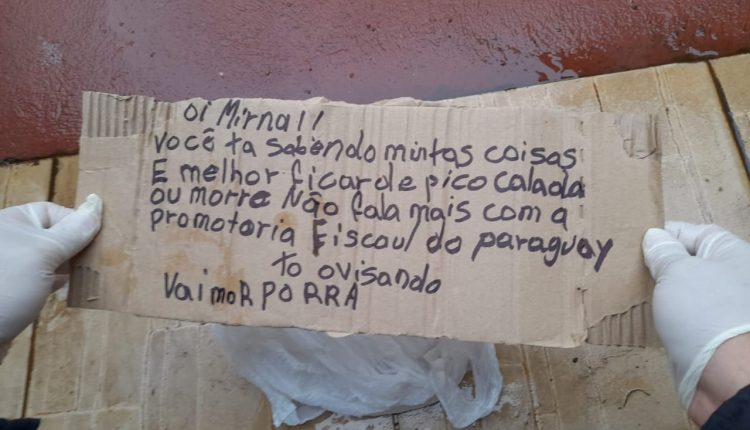 oi Mirna!!
você ta sabendo mintas coisas
E melhor ficar de pico calada
ou morre Não fala mais com a
promotoria Fiscoul do paraguay
to ovisando
Vai moR PORRA